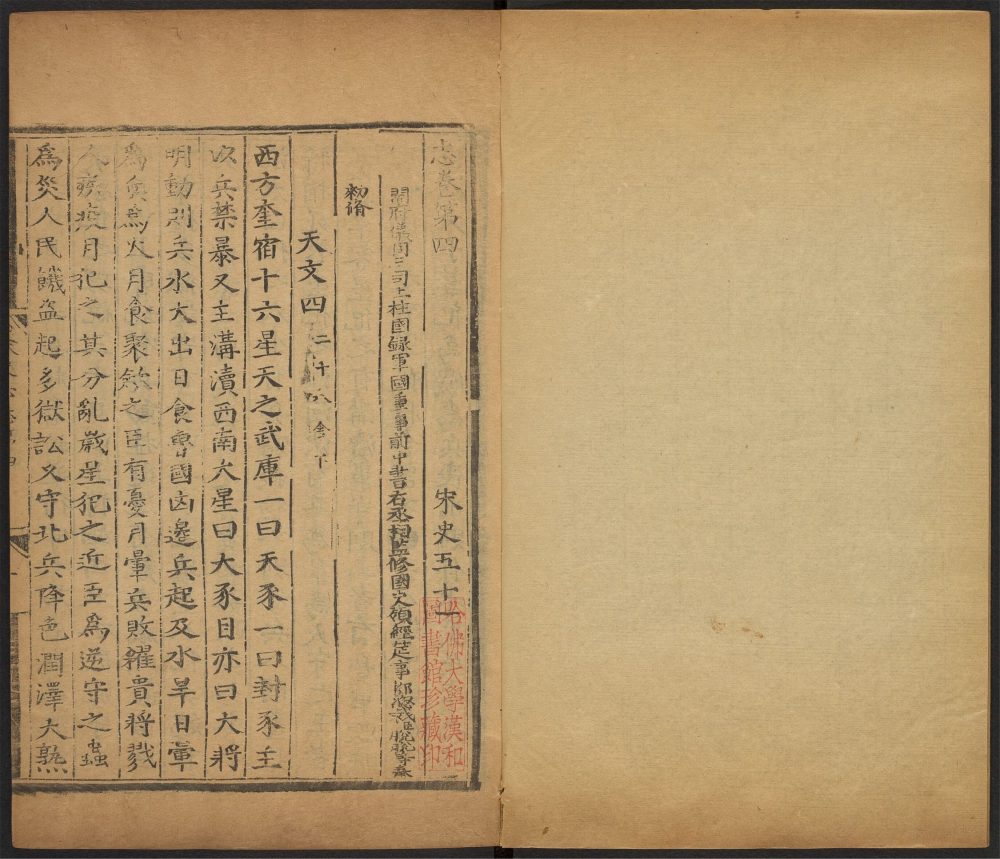 志卷第四 宋史五十一
開府儀同三司上柱國錄軍國重事前中書右丞相監修國史領經筵事都總裁臣脫脫等奉
勑脩
天文四 二十八舍下
西方奎宿十六星天之武庫一曰天豕一曰封豕主
以兵禁暴又主溝瀆西南大星曰大豕目亦曰大將
明動則兵水大出日食魯國凶邊兵起及水旱日暈
爲兵爲火月食聚斂之臣有憂月暈兵敗糴貴將戮
人疾疫月犯之其分亂歲星犯之近臣爲逆守之蟲
爲災人民饑盜起多獄訟又守北兵降色潤澤大熟
哈佛大學漢和
圖書館珍藏印